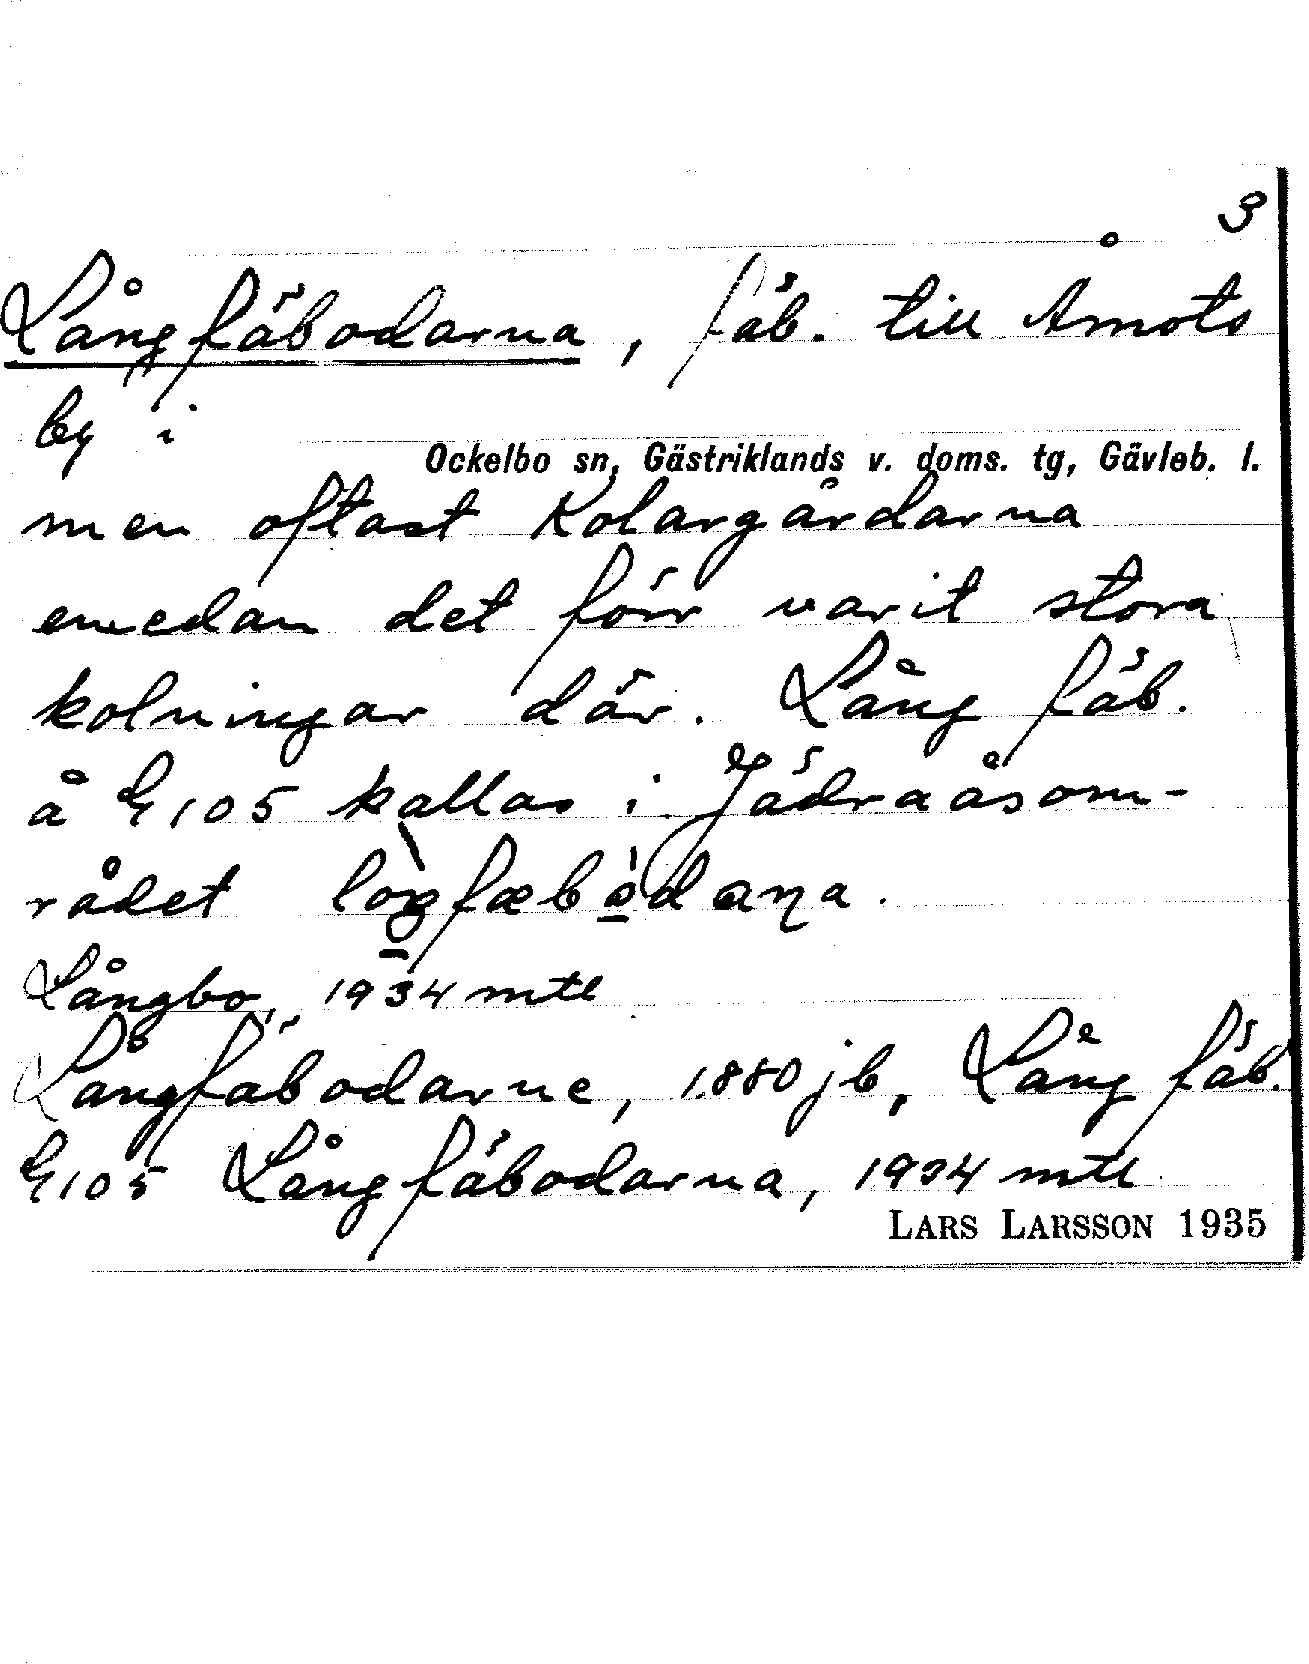 3
Långfäbodarna, fäb. till Åmots
by i
Ockelbo sn, Gästriklands v. doms. tg, Gävleb. l.
men oftast Kolargårdarna
emedan det förr varit stora
kolningar där. Lång fäb.
å G 105 kallas i Jädraåsom-
rådet
Långbo, 1934 mtl
Långfäbodarne, 1880 jb, Lång fäb.
G 105 Långfäbodarna, 1934 mtl
LARS LARSSON 1935